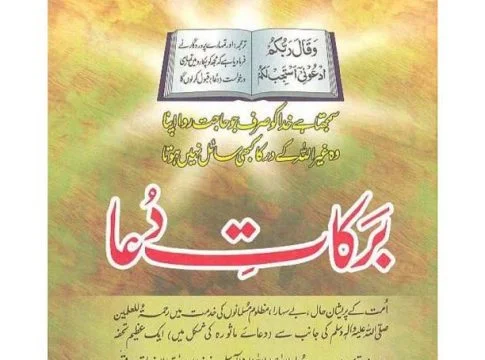 وَقَالَ رَبُّكُمُ
ادْعُوْنِیْۤ اَسْتَجِبْ لَكُمْ
ترجمہ: اور تمہارے پروردگار نے
فرمایا ہے کہ مجھ کو پکارو میں تمہاری
درخواست دعا قبول کروں گا
سمجھتا ہے خدا کو صرف جو حاجت روا اپنا
وہ غیر اللہ کے در کا کبھی سائل نہیں ہوتا
بَرکاتِ دُعا
اُمت کے پریشان حال، بے سہارا، مظلوم مُسلمانوں کی خدمت میں رحمۃٌ لِّلعٰلمین
صلی اللہ علیہ وآلہ وسلم کی جانب سے (دعائے ماثورہ کی شکل میں) ایک عظیم تحفہ